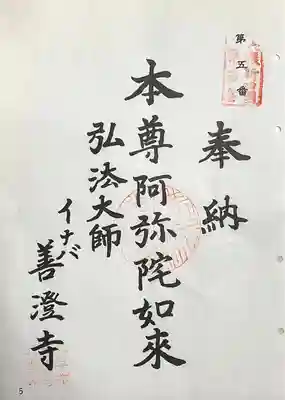 第五番
奉納
本尊阿弥陀如來
弘法大師
イナバ
善澄寺
5